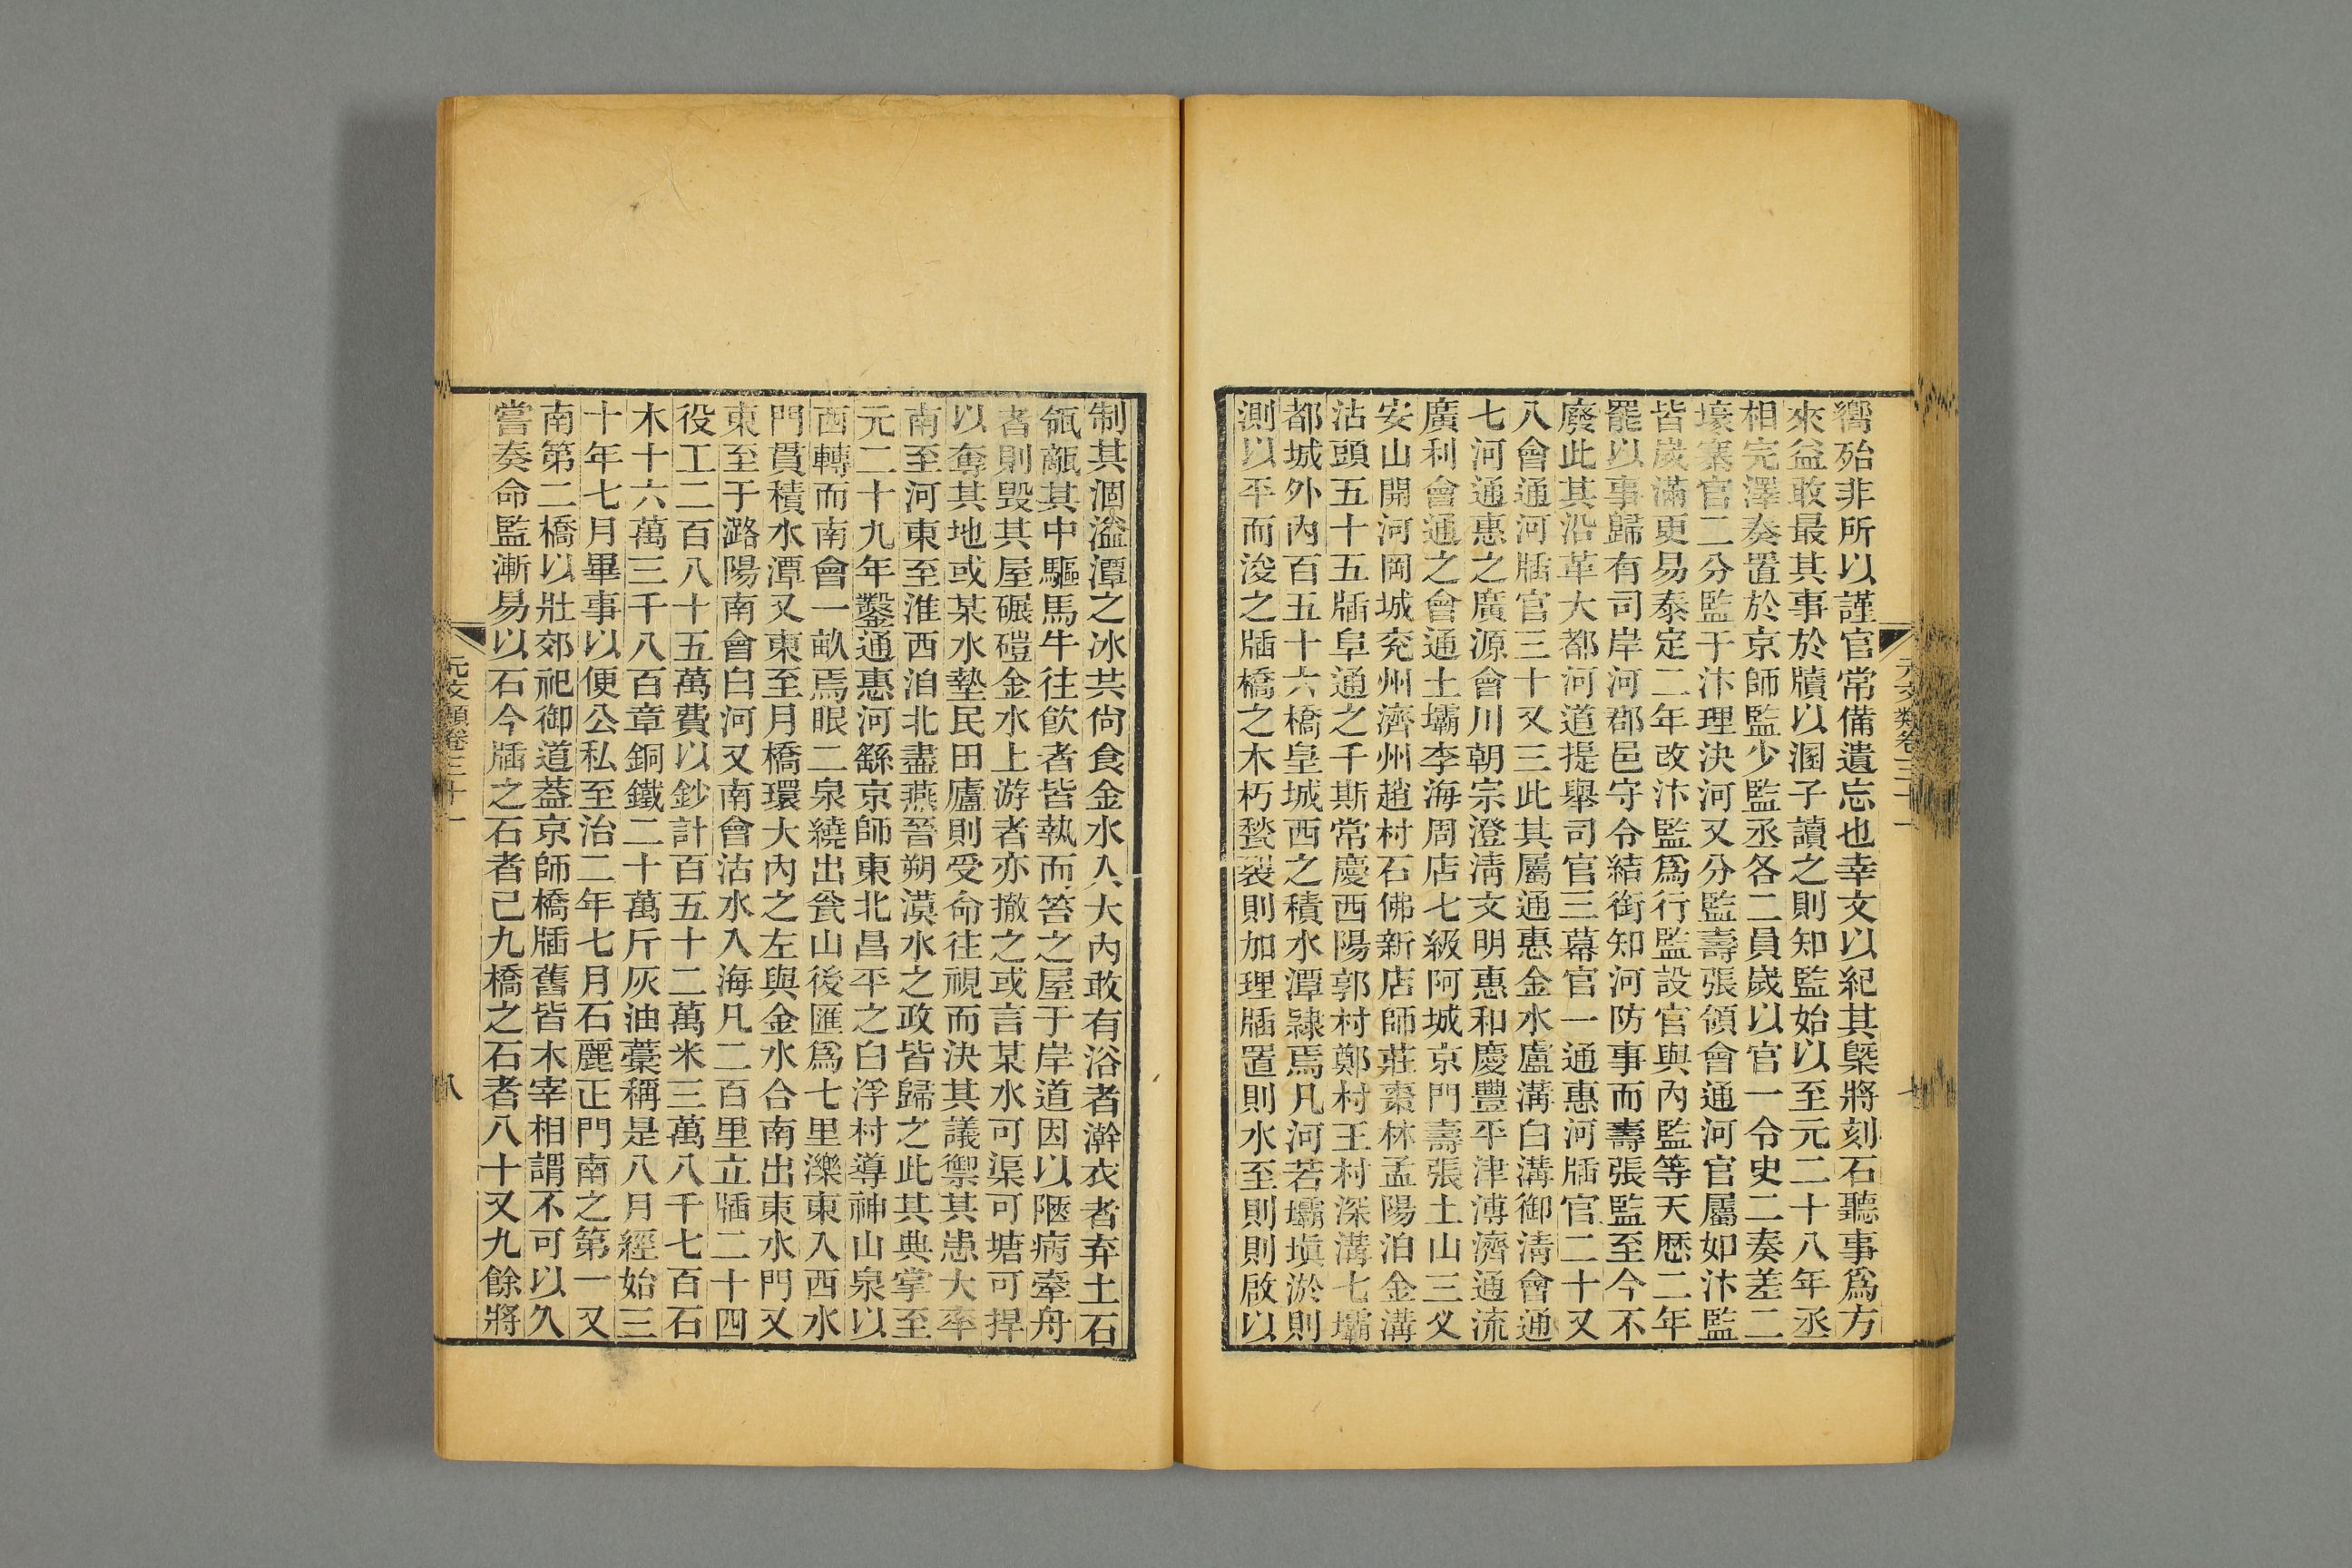 嚮殆非所以謹官常備遺忘也幸文以紀其槩將刻石聽事爲方
來益敢最其事於牘以溷子讀之則知監始以至元二十八年丞
相完澤奏置於京師監少監丞各二員歲以官一令史二奏差二
壕寨官二分監于汴理決河又分監壽張領會通河官屬如汴監
皆歲滿更易泰定二年改汴監爲行監設官與內監等天歷二年
罷以事歸有司岸河郡邑守令結銜知河防事而壽張監至今不
廢此其沿革大都河道提舉司官三幕官一通惠河牐官二十又
八會通河牐官三十又三此其屬通惠金水盧溝白溝御清會通
七河通惠之廣源會川朝宗澄清文明惠和慶豐平津溥濟通流
廣利會通之會通土壩李海周店七級阿城京門壽張土山三乂
安山開河岡城兖州濟州趙村石佛新店師莊棗林孟陽泊金溝
沽頭五十五牐阜通之千斯常慶西陽郭村鄭村王村深溝七壩
都城外內百五十六橋皇城西之積水潭隷焉凡河若壩塡淤則
測以平而浚之牐橋之木朽甃裂則加理牐置則水至則則啟以
制其涸溢潭之冰共尙食金水入大內敢有浴者澣衣者弃土石
瓴甋其中驅馬牛往飮者皆執而笞之屋于岸道因以陿病牽舟
者則毁其屋碾磑金水上游者亦撤之或言某水可渠可塘可捍
以奪其地或某水墊民田廬則受命往視而決其議禦其患大率
南至河東至淮西洎北盡燕晉朔漠水之政皆歸之此其典掌至
元二十九年鑿通惠河繇京師東北昌平之白浮村導神山泉以
西轉而南會一畝馬眼二泉繞出瓮山後匯爲七里濼東入西水
門貫積水潭又東至月橋環大內之左與金水合南出東水門又
東至于潞陽南會白河又南會沽水入海凡二百里立牐二十四
役工二百八十五萬費以鈔計百五十二萬米三萬八千七百石
木十六萬三千八百章銅鐵二十萬斤灰油藁稱是八月經始三
十年七月畢事以便公私至治二年七月石麗正門南之第一又
南第二橋以壯郊祀御道葢京師橋牐舊皆木宰相謂不可以久
嘗奏命監漸易以石今牐之石者已九橋之石者八十又九餘將
元文類卷三十一
八